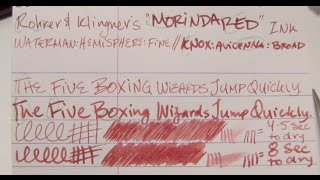 Rohrer & Klingner's "MORINDARED" INK
WATERMAN:HEMISPHERE:FINE//KNOX:AVICENNA:BROAD
THE FIVE BOXING WIZARDS JUMP QUICKLY
The Five Boxing Wizards Jump Quickly.
= 4.5 sec to dry
= 8 sec to dry